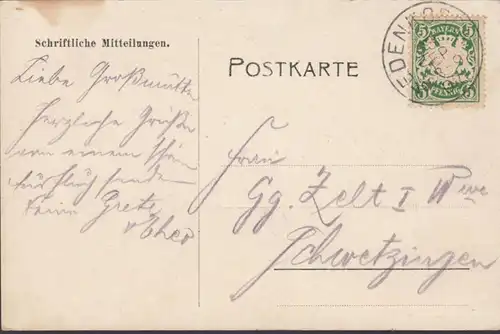 Schriftliche Mitteilungen.
POSTKARTE
Liebe Großmutter
Herzliche Grüße
von einem schön
Ausflug senden
Deine Grete
u Theo
Frau
Gg. Zelt I Wwe
Schwetzingen
EDENKOB
5 BAYERN 5
5 PFENNIG 5